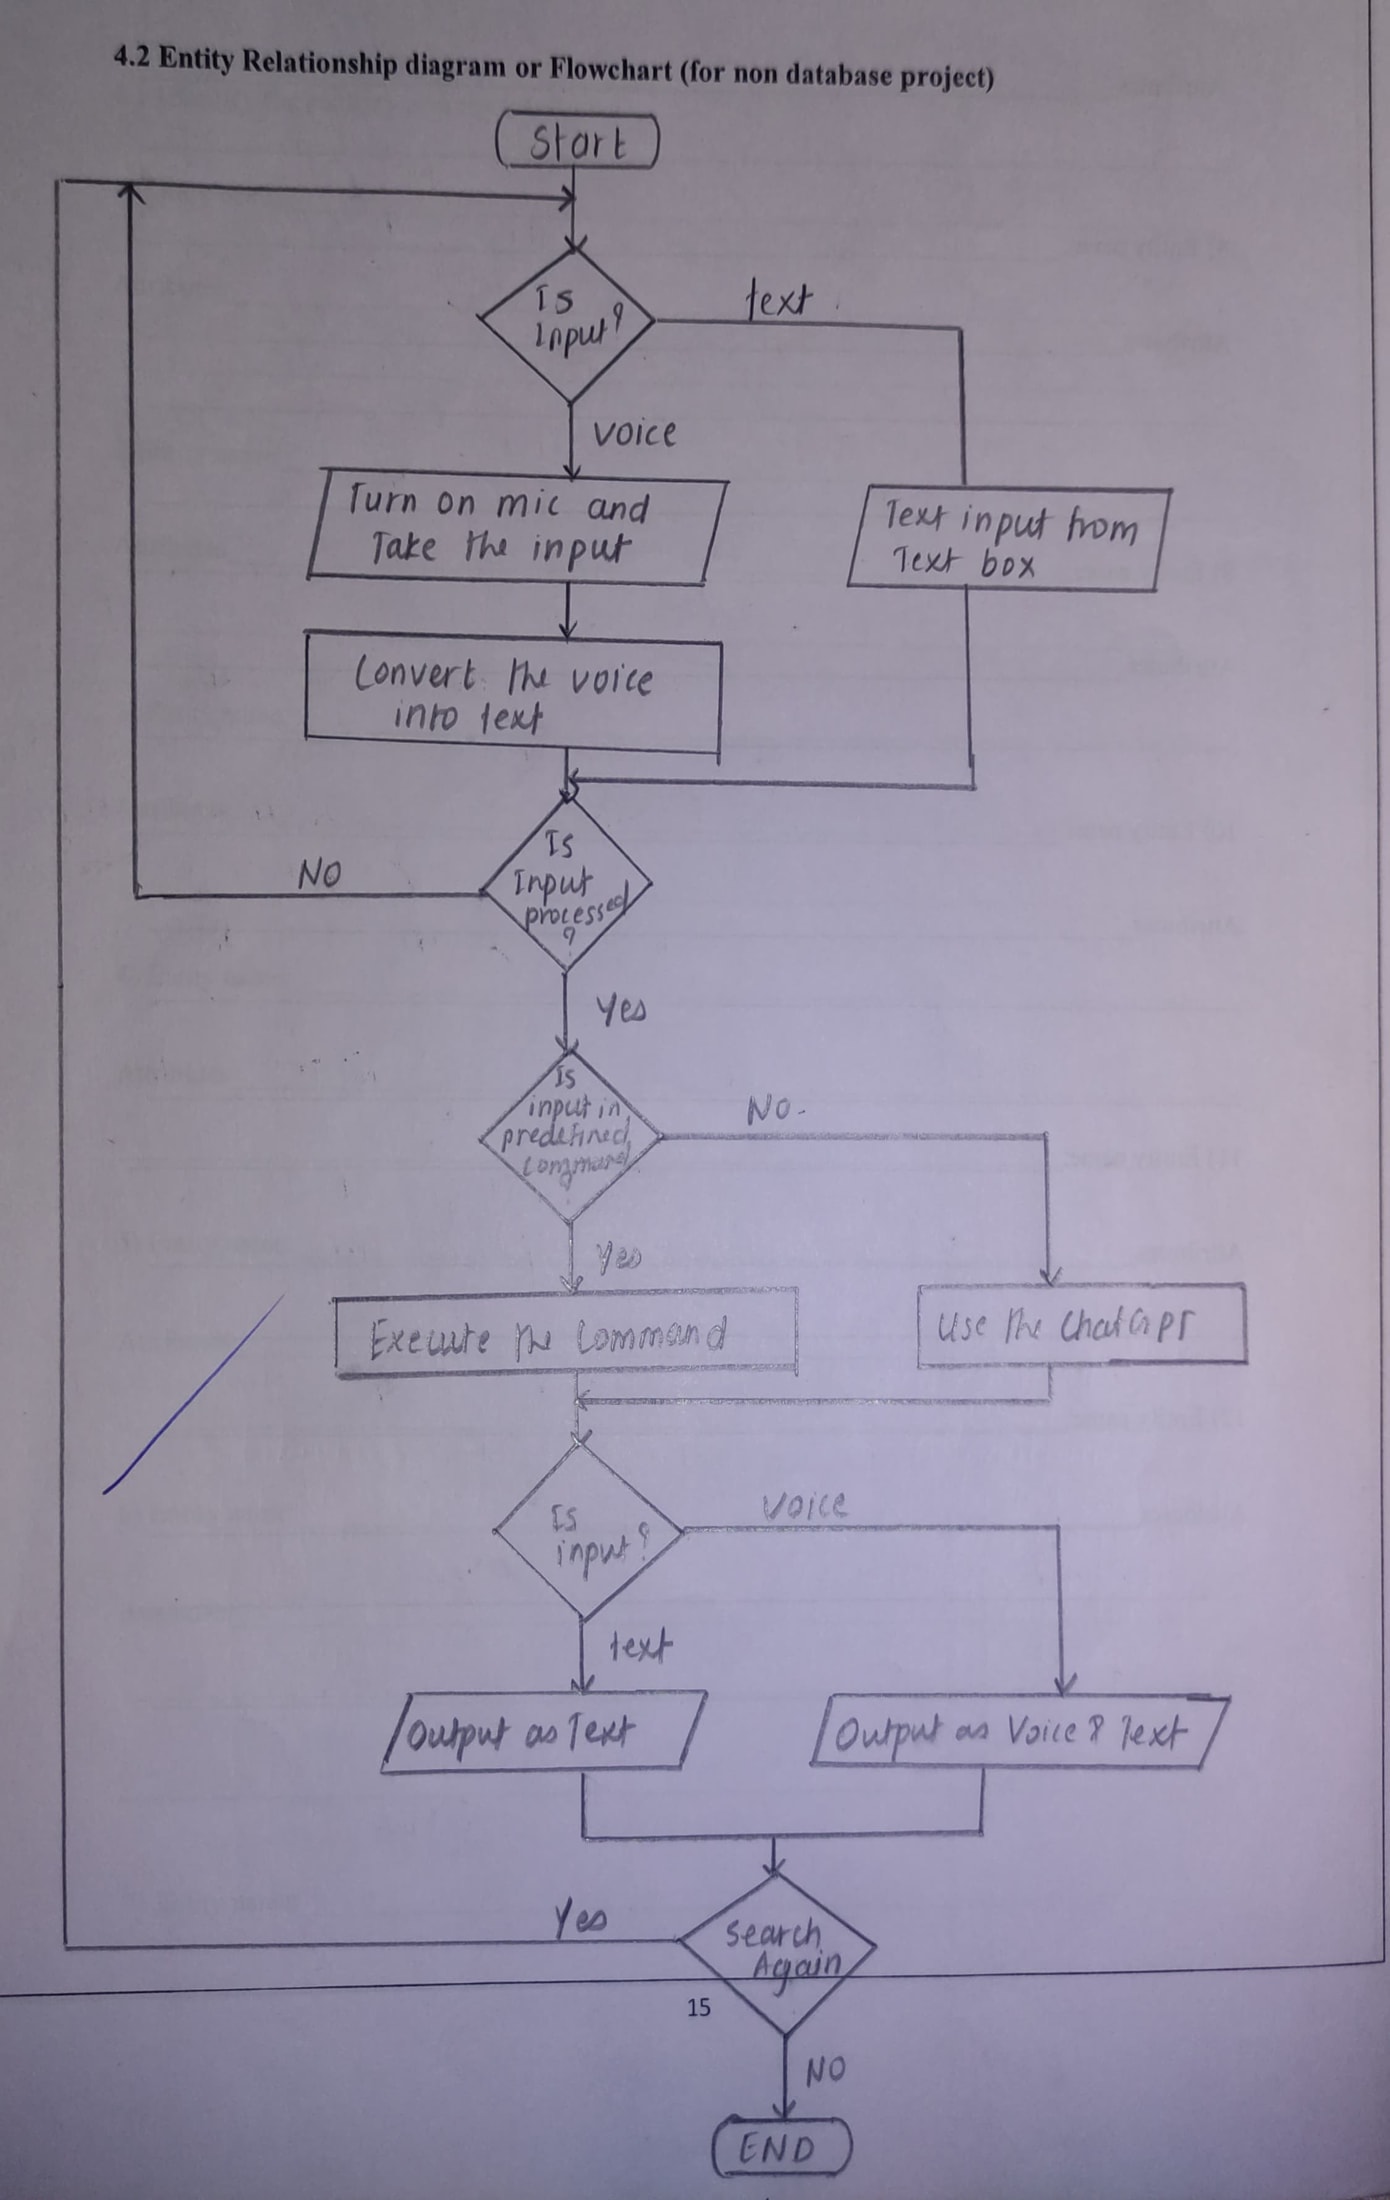 4.2 Entity Relationship diagram or Flowchart (for non database project)
Start
Is
Input?
text
voice
Turn on mic and
Take the input
Text input from
Text box
Convert the voice
into text
Is
Input
processed
?
NO
Yes
Is
input in
predefined
command
?
NO
Yes
Execute the Command
Use the ChatGPT
Is
input?
voice
text
Output as Text
Output as Voice & Text
Search
Again
Yes
15
NO
END